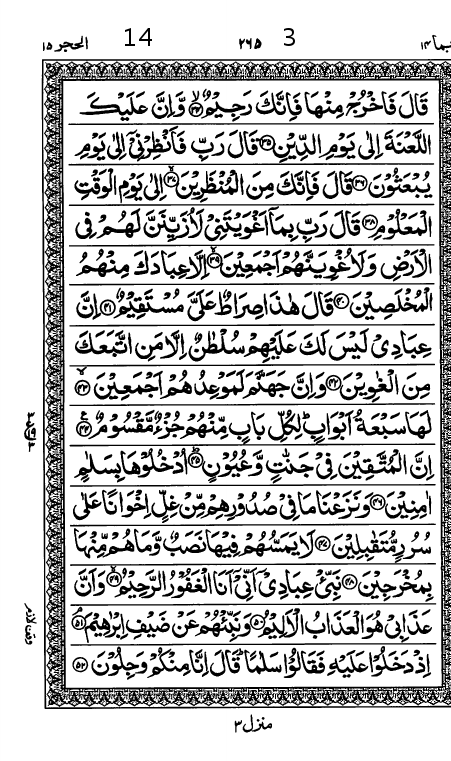 الحجر ١٥ 14 ٢٦٥ 3 ربما ١٤
قَالَ فَاخْرُجْ مِنْهَا فَاِنَّكَ رَجِيْمٌ ۙ﴿۳۴﴾ وَّاِنَّ عَلَيْكَ
اللَّعْنَةَ اِلٰى يَوْمِ الدِّيْنِ ﴿۳۵﴾ قَالَ رَبِّ فَاَنْظِرْنِيْٓ اِلٰى يَوْمِ
يُبْعَثُوْنَ ﴿۳۶﴾ قَالَ فَاِنَّكَ مِنَ الْمُنْظَرِيْنَ ۙ﴿۳۷﴾ اِلٰى يَوْمِ الْوَقْتِ
الْمَعْلُوْمِ ﴿۳۸﴾ قَالَ رَبِّ بِمَآ اَغْوَيْتَنِيْ لَاُزَيِّنَنَّ لَهُمْ فِى
الْاَرْضِ وَلَاُغْوِيَنَّهُمْ اَجْمَعِيْنَ ۙ﴿۳۹﴾ اِلَّا عِبَادَكَ مِنْهُمُ
الْمُخْلَصِيْنَ ﴿۴۰﴾ قَالَ هٰذَا صِرَاطٌ عَلَيَّ مُسْتَقِيْمٌ ﴿۴۱﴾ اِنَّ
عِبَادِيْ لَيْسَ لَكَ عَلَيْهِمْ سُلْطٰنٌ اِلَّا مَنِ اتَّبَعَكَ
مِنَ الْغٰوِيْنَ ﴿۴۲﴾ وَاِنَّ جَهَنَّمَ لَمَوْعِدُهُمْ اَجْمَعِيْنَ ۙ﴿۴۳﴾
لَهَا سَبْعَةُ اَبْوَابٍ ؕ لِكُلِّ بَابٍ مِّنْهُمْ جُزْءٌ مَّقْسُوْمٌ ﴿۴۴﴾
اِنَّ الْمُتَّقِيْنَ فِيْ جَنّٰتٍ وَّعُيُوْنٍ ؕ﴿۴۵﴾ اُدْخُلُوْهَا بِسَلٰمٍ
اٰمِنِيْنَ ﴿۴۶﴾ وَنَزَعْنَا مَا فِيْ صُدُوْرِهِمْ مِّنْ غِلٍّ اِخْوَانًا عَلٰى
سُرُرٍ مُّتَقٰبِلِيْنَ ﴿۴۷﴾ لَا يَمَسُّهُمْ فِيْهَا نَصَبٌ وَّمَا هُمْ مِّنْهَا
بِمُخْرَجِيْنَ ﴿۴۸﴾ نَبِّئْ عِبَادِيْٓ اَنِّيْٓ اَنَا الْغَفُوْرُ الرَّحِيْمُ ۙ﴿۴۹﴾ وَاَنَّ
عَذَابِيْ هُوَ الْعَذَابُ الْاَلِيْمُ ﴿۵۰﴾ وَنَبِّئْهُمْ عَنْ ضَيْفِ اِبْرٰهِيْمَ ۘ﴿۵۱﴾
اِذْ دَخَلُوْا عَلَيْهِ فَقَالُوْا سَلٰمًا ؕ قَالَ اِنَّا مِنْكُمْ وَجِلُوْنَ ﴿۵۲﴾
منزل ٣